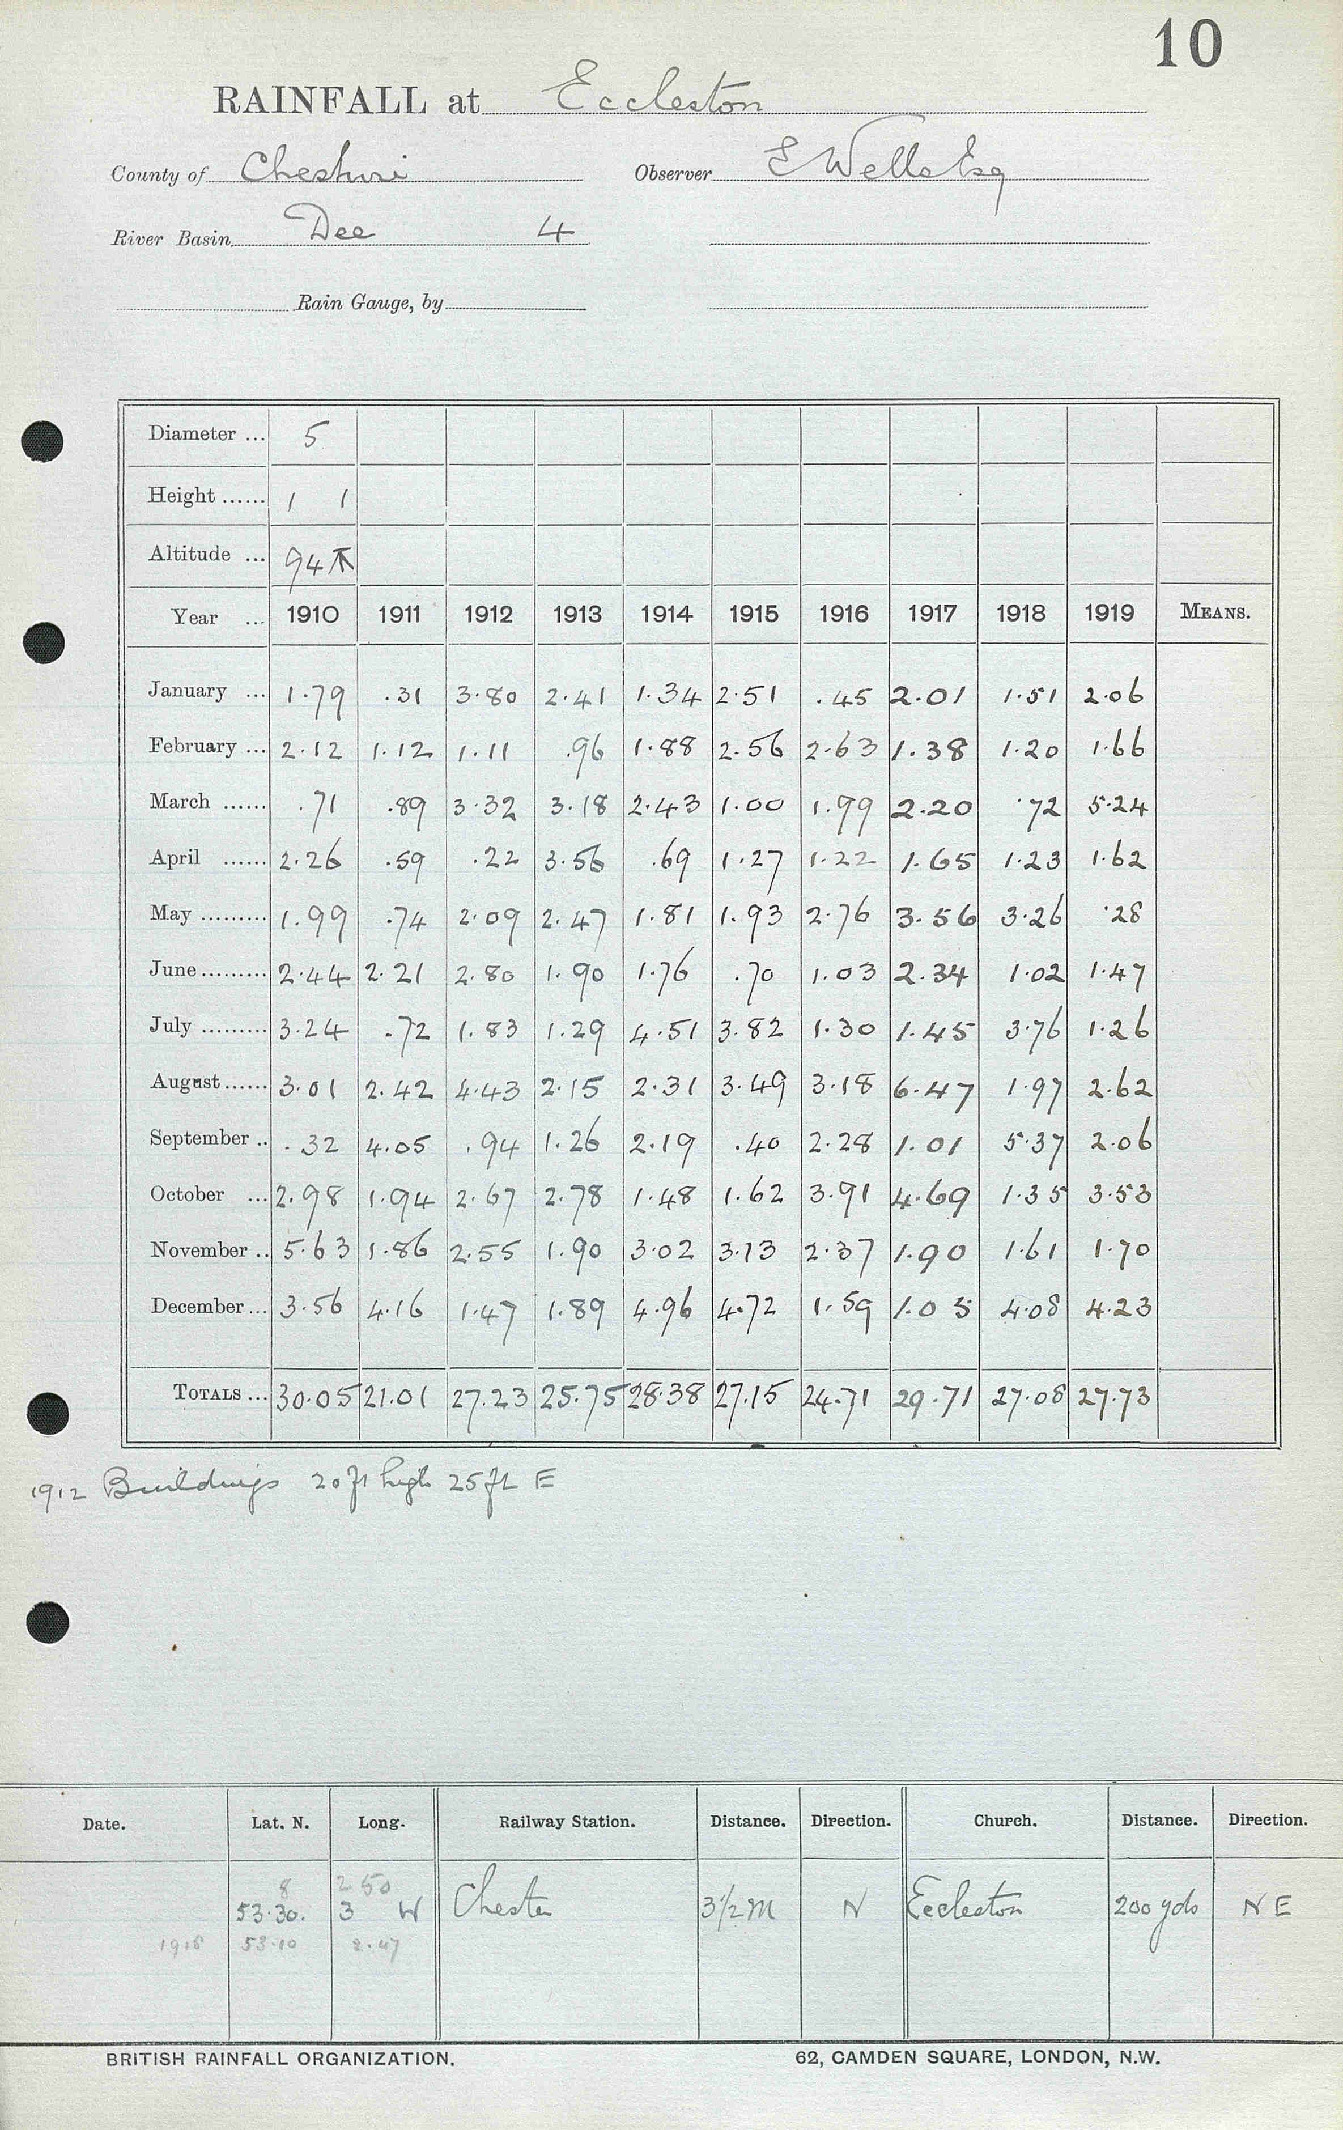 10
RAINFALL at Eccleston
County of Cheshire Observer E Wells Esq
River Basin Dee 4
Rain Gauge, by
Diameter ... 5
Height ...... 1 1
Altitude ... 94
Year ... 1910 1911 1912 1913 1914 1915 1916 1917 1918 1919 MEANS.
January ... 1.79 .31 3.80 2.41 1.34 2.51 .45 2.01 1.51 2.06
February ... 2.12 1.12 1.11 .96 1.88 2.56 2.63 1.38 1.20 1.66
March ...... .71 .89 3.32 3.18 2.43 1.00 1.99 2.20 .72 5.24
April ...... 2.26 .59 .22 3.56 .69 1.27 1.22 1.65 1.23 1.62
May ......... 1.99 .74 2.09 2.47 1.81 1.93 2.76 3.56 3.26 .28
June ......... 2.44 2.21 2.80 1.90 1.76 .70 1.03 2.34 1.02 1.47
July ......... 3.24 .72 1.83 1.29 4.51 3.82 1.30 1.45 3.76 1.26
August ...... 3.01 2.42 4.43 2.15 2.31 3.49 3.18 6.47 1.97 2.62
September .. .32 4.05 .94 1.26 2.19 .40 2.28 1.01 5.37 2.06
October ... 2.98 1.94 2.67 2.78 1.48 1.62 3.91 4.69 1.35 3.53
November .. 5.63 1.86 2.55 1.90 3.02 3.13 2.37 1.90 1.61 1.70
December ... 3.56 4.16 1.47 1.89 4.96 4.72 1.59 1.05 4.08 4.23
TOTALS ... 30.05 21.01 27.23 25.75 28.38 27.15 24.71 29.71 27.08 27.73
1912 Buildings 20 ft high 25 ft E
Date. Lat. N. Long. Railway Station. Distance. Direction. Church. Distance. Direction.
8 2 50
53.30. 3 W Chester 3½ m N Eccleston 200 yds NE
1918 53.10 2.47
BRITISH RAINFALL ORGANIZATION. 62, CAMDEN SQUARE, LONDON, N.W.